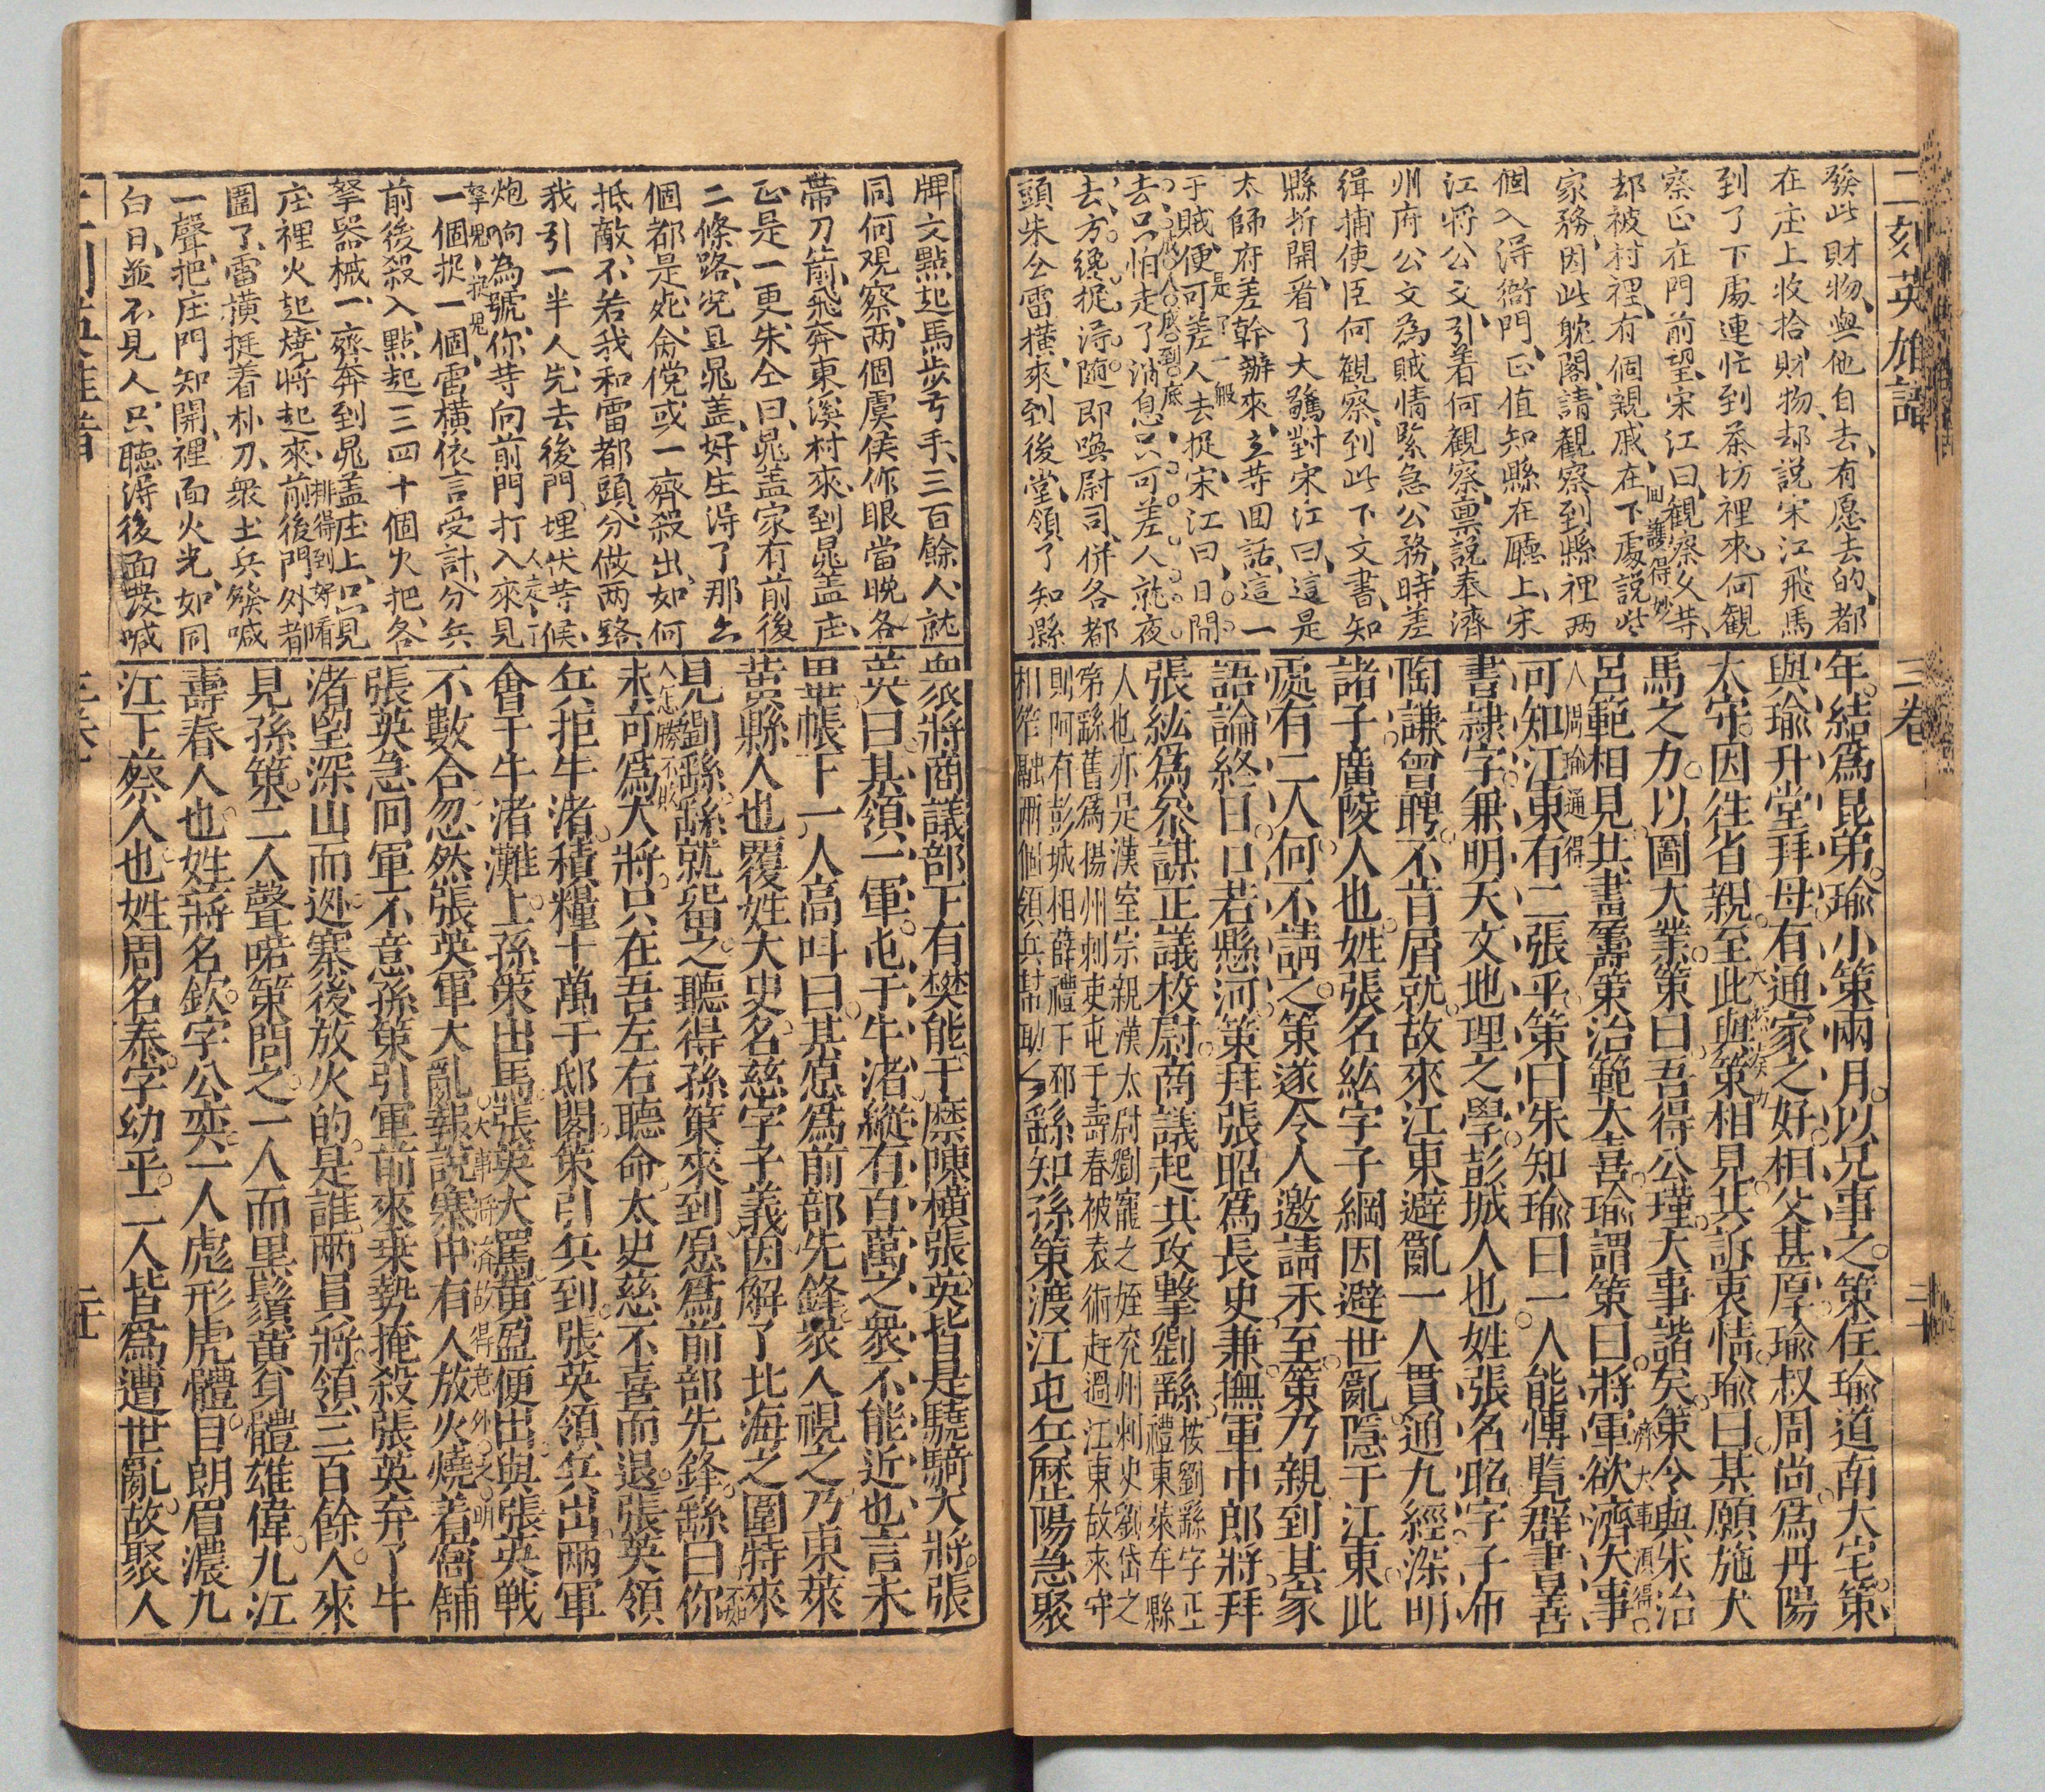 二刻英雄譜
三卷
二十
發此財物與他自去有愿去的都
在庄上收拾財物却説宋江飛馬
到了下處連忙到茶坊裡來何觀
察正在門前望宋江曰觀察父等
却被村裡有個親戚在下處説些
回護得妙
家務因此躭閣請觀察到縣裡兩
個入得衙門正值知縣在廳上宋
江將公文引着何觀察禀説奉濟
州府公文為賊情緊急公務時差
緝捕使臣何觀察到此下文書知
縣折開看了大驚對宋江曰這是
太師府差幹辦來立等回話這一
于賊便可差人去捉宋江曰日間
去只怕走了消息只可差人就夜
去方纔捉得随即喚尉司併各都
頭朱仝雷横來到後堂領了知縣
年結爲昆弟瑜小策兩月以兄事之策在瑜道南大宅策
與瑜升堂拜母有通家之好相父甚厚瑜叔周尚爲丹陽
太守因往省親至此與策相見共訴衷情瑜曰某願施犬
馬之力以圖大業策曰吾得公瑾大事諧矣策令與朱治
呂範相見共書籌策治範大喜瑜謂策曰將軍欲濟大事
濟大事須得
人周瑜通得
可知江東有二張乎策曰未知瑜曰一人能愽覽群書善
書隸字兼明天文地理之學彭城人也姓張名昭字子布
陶謙曾聘不肯屑就故來江東避亂一人貫通九經深明
諸子廣陵人也姓張名紘字子綱因避世亂隱于江東此
處有二人何不請之策遂令人邀請不至策乃親到其家
語論終日口若懸河策拜張昭爲長史兼撫軍中郎將拜
張紘爲叅謀正議校尉商議起兵攻擊劉繇
按劉繇字正
禮東萊牟縣
人也亦是漢室宗親漢太尉劉寵之姪兖州刺史劉岱之
弟繇舊爲揚州刺史屯于壽春被袁術赶過江東故來守
則阿有彭城相薛禮下邳
相笮融兩個領兵某助之
繇知孫策渡江屯兵歷陽急聚
牌文點起馬步弓手三百餘人就
同何观察两個虞侯作眼當晚各
帶刀箭飛奔東溪村來到晁盖庄
正是一更朱仝曰晁盖家有前後
二條路况且晁盖好庄得了那六
個都是死舍儻或一齊殺出如何
抵敵不若我和雷都頭分做两路
我引一半人先去後門埋伏等候
炮响為號你等向前門打入來見
一個捉一個雷横依言受計分兵
前後殺入點起三四十個火把各
拏器械一齊奔到晁盖庄上只見
庄裡火起燒將起來前後門外都
排得到好看
圍了雷橫挺着朴刀衆土兵發喊
一聲把庄門知開裡面火光如同
白日並不見人只聽得後面發喊
血衆將商議部下有樊能于麋陳橫張英皆是驍騎大將張
英曰某領一軍屯于牛渚縱有百萬之衆不能近也言未
畢帳下一人高呌曰某愿爲前部先鋒衆人視之乃東萊
黄縣人也覆姓大史名慈字子義因解了北海之圍特來
見劉繇繇就留之聽得孫策來到愿爲前部先鋒繇曰你
人怎勝不敗
未可爲大將只在吾左右聽命太史慈不喜而退張英領
兵拒牛渚積糧十萬于邸閣策引兵到張英領兵出兩軍
會于牛渚灘上孫策出馬張英大罵黄盈便出與張英戰
不數合忽然張英軍大亂報説寨中有人放火燒着窩舖
張英急回軍不意孫策引軍前來乗勢掩殺張英弃了牛
渚望深山而逊寨後放火的是誰两員將領三百餘人來
見孫策二人聲喏策問之一人而黒鬚黄身體雄偉九江
壽春人也姓蔣名欽字公奕一人彪形虎體目朗眉濃九
江下蔡人也姓周名泰字幼平二人皆爲遭世亂故聚人